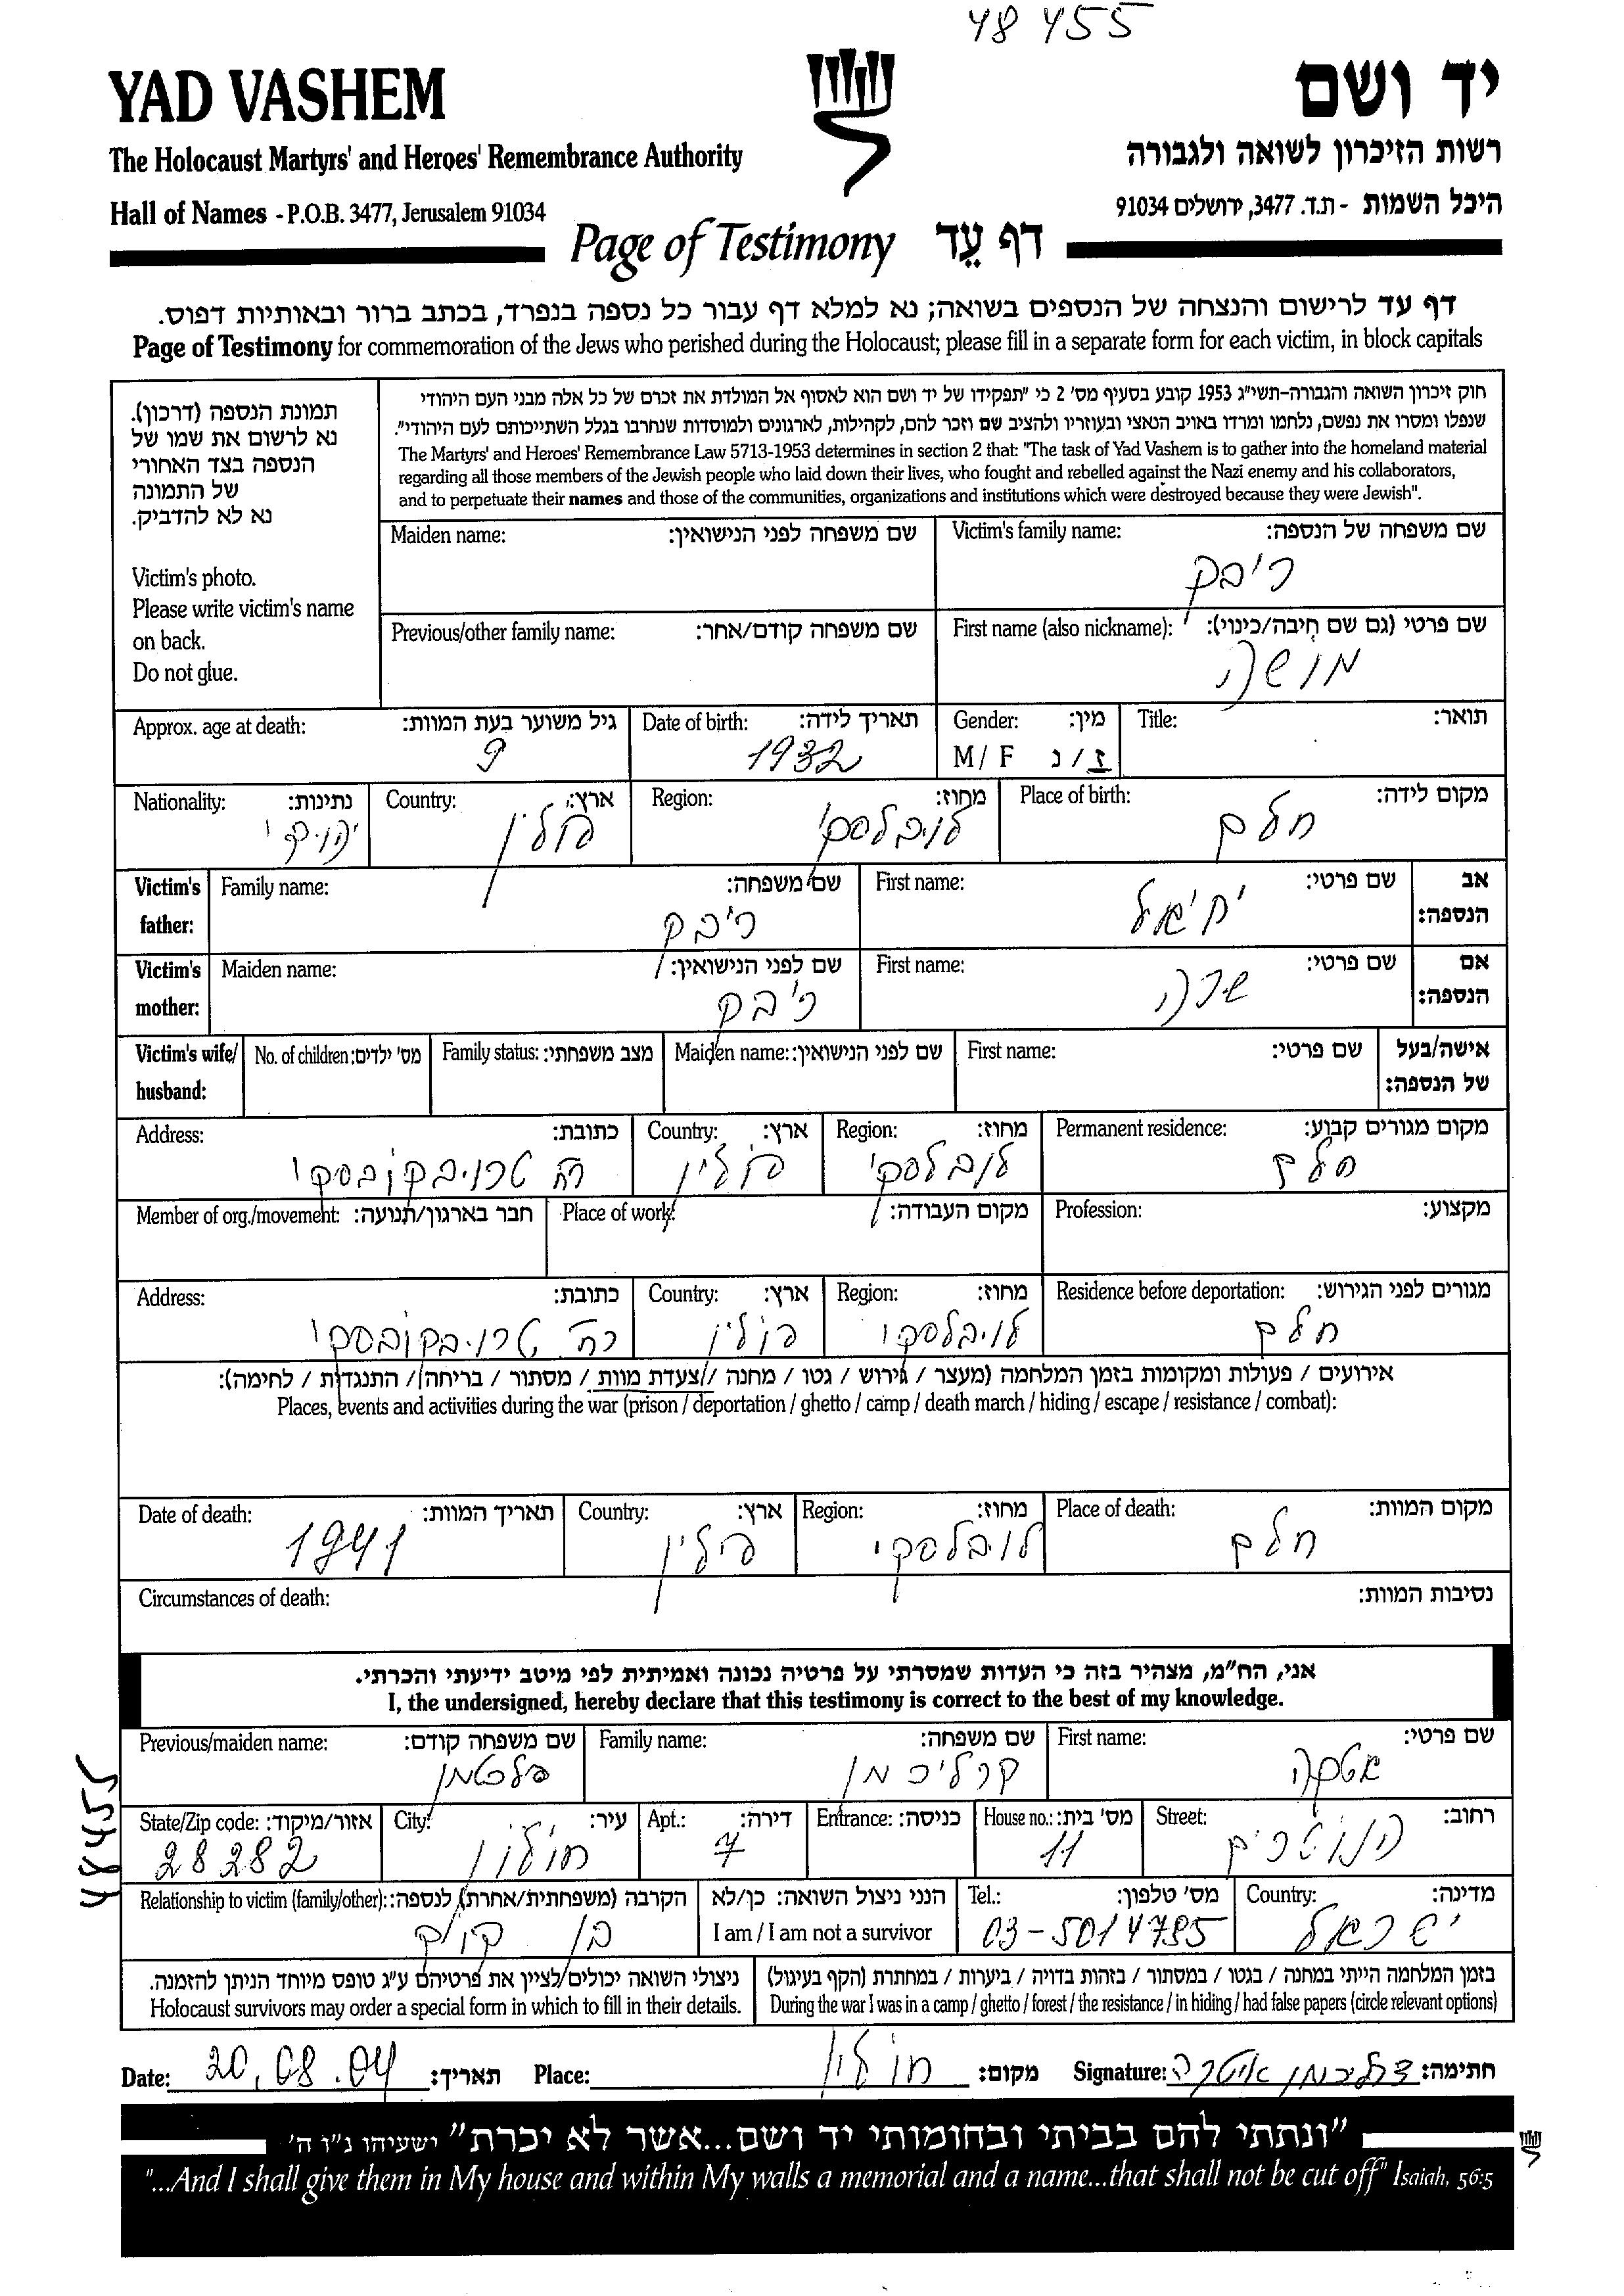 48 455
YAD VASHEM
יד ושם
The Holocaust Martyrs' and Heroes' Remembrance Authority
רשות הזיכרון לשואה ולגבורה
Hall of Names - P.O.B. 3477, Jerusalem 91034
היכל השמות - ת.ד. 3477, ירושלים 91034
Page of Testimony דף עֵד
דף עד לרישום והנצחה של הנספים בשואה; נא למלא דף עבור כל נספה בנפרד, בכתב ברור ובאותיות דפוס.
Page of Testimony for commemoration of the Jews who perished during the Holocaust; please fill in a separate form for each victim, in block capitals
תמונת הנספה (דרכון).
נא לרשום את שמו של
הנספה בצד האחורי
של התמונה
נא לא להדביק.
Victim's photo.
Please write victim's name
on back.
Do not glue.
חוק זיכרון השואה והגבורה-תשי"ג 1953 קובע בסעיף מס' 2 כי "תפקידו של יד ושם הוא לאסוף אל המולדת את זכרם של כל אלה מבני העם היהודי
שנפלו ומסרו את נפשם, נלחמו ומרדו באויב הנאצי ובעוזריו ולהציב שם וזכר להם, לקהילות, לארגונים ולמוסדות שנחרבו בגלל השתייכותם לעם היהודי".
The Martyrs' and Heroes' Remembrance Law 5713-1953 determines in section 2 that: "The task of Yad Vashem is to gather into the homeland material
regarding all those members of the Jewish people who laid down their lives, who fought and rebelled against the Nazi enemy and his collaborators,
and to perpetuate their names and those of the communities, organizations and institutions which were destroyed because they were Jewish".
שם משפחה של הנספה: Victim's family name: שם משפחה לפני הנישואין: Maiden name:
ריבק
שם פרטי (גם שם חיבה/כינוי): First name (also nickname): שם משפחה קודם/אחר: Previous/other family name:
מושה
תואר: Title: מין: Gender: תאריך לידה: Date of birth: גיל משוער בעת המוות: Approx. age at death:
ז/נ M/ F 1932 9
מקום לידה: Place of birth: מחוז: Region: ארץ: Country: נתינות: Nationality:
חלם לובלסקי פולין יהודי
אב שם פרטי: First name: שם משפחה: Family name: Victim's
הנספה: יחיאל ריבק father:
אם שם פרטי: First name: שם לפני הנישואין: Maiden name: Victim's
הנספה: שרה ריבק mother:
אישה/בעל שם פרטי: First name: שם לפני הנישואין: Maiden name: מצב משפחתי: Family status: מס' ילדים: No. of children: Victim's wife/
של הנספה: husband:
מקום מגורים קבוע: Permanent residence: מחוז: Region: ארץ: Country: כתובת: Address:
חלם לובלסקי פולין רח טרויבקובסקי
מקצוע: Profession: מקום העבודה: Place of work: חבר בארגון/תנועה: Member of org./movement:
מגורים לפני הגירוש: Residence before deportation: מחוז: Region: ארץ: Country: כתובת: Address:
חלם לובלסקי פולין רח' טרויבקובסקי
אירועים / פעולות ומקומות בזמן המלחמה (מעצר / גירוש / גטו / מחנה / צעדת מוות / מסתור / בריחה / התנגדות / לחימה):
Places, events and activities during the war (prison / deportation / ghetto / camp / death march / hiding / escape / resistance / combat):
מקום המוות: Place of death: מחוז: Region: ארץ: Country: תאריך המוות: Date of death:
חלם לובלסקי פולין 1941
נסיבות המוות: Circumstances of death:
אני, הח"מ, מצהיר בזה כי העדות שמסרתי על פרטיה נכונה ואמיתית לפי מיטב ידיעתי והכרתי.
I, the undersigned, hereby declare that this testimony is correct to the best of my knowledge.
שם פרטי: First name: שם משפחה: Family name: שם משפחה קודם: Previous/maiden name:
אטקה קרליכמן
רחוב: Street: מס' בית: House no.: כניסה: Entrance: דירה: Apt.: עיר: City: אזור/מיקוד: State/Zip code:
הנוטרים 11 7 חולון 28282
48455
מדינה: Country: מס' טלפון: Tel.: הנני ניצול השואה: כן/לא הקרבה (משפחתית/אחרת) לנספה: Relationship to victim (family/other):
ישראל 03-5014795 I am / I am not a survivor בן דוד
בזמן המלחמה הייתי במחנה / בגטו / במסתור / בזהות בדויה / ביערות / במחתרת (הקף בעיגול)
During the war I was in a camp / ghetto / forest / the resistance / in hiding / had false papers (circle relevant options)
ניצולי השואה יכולים לציין את פרטיהם ע"ג טופס מיוחד הניתן להזמנה.
Holocaust survivors may order a special form in which to fill in their details.
חתימה: Signature: מקום: חולון Place: תאריך: 20.08.04 Date:
"ונתתי להם בביתי ובחומותי יד ושם...אשר לא יכרת" ישעיהו נ"ו ה'
"...And I shall give them in My house and within My walls a memorial and a name...that shall not be cut off" Isaiah, 56:5